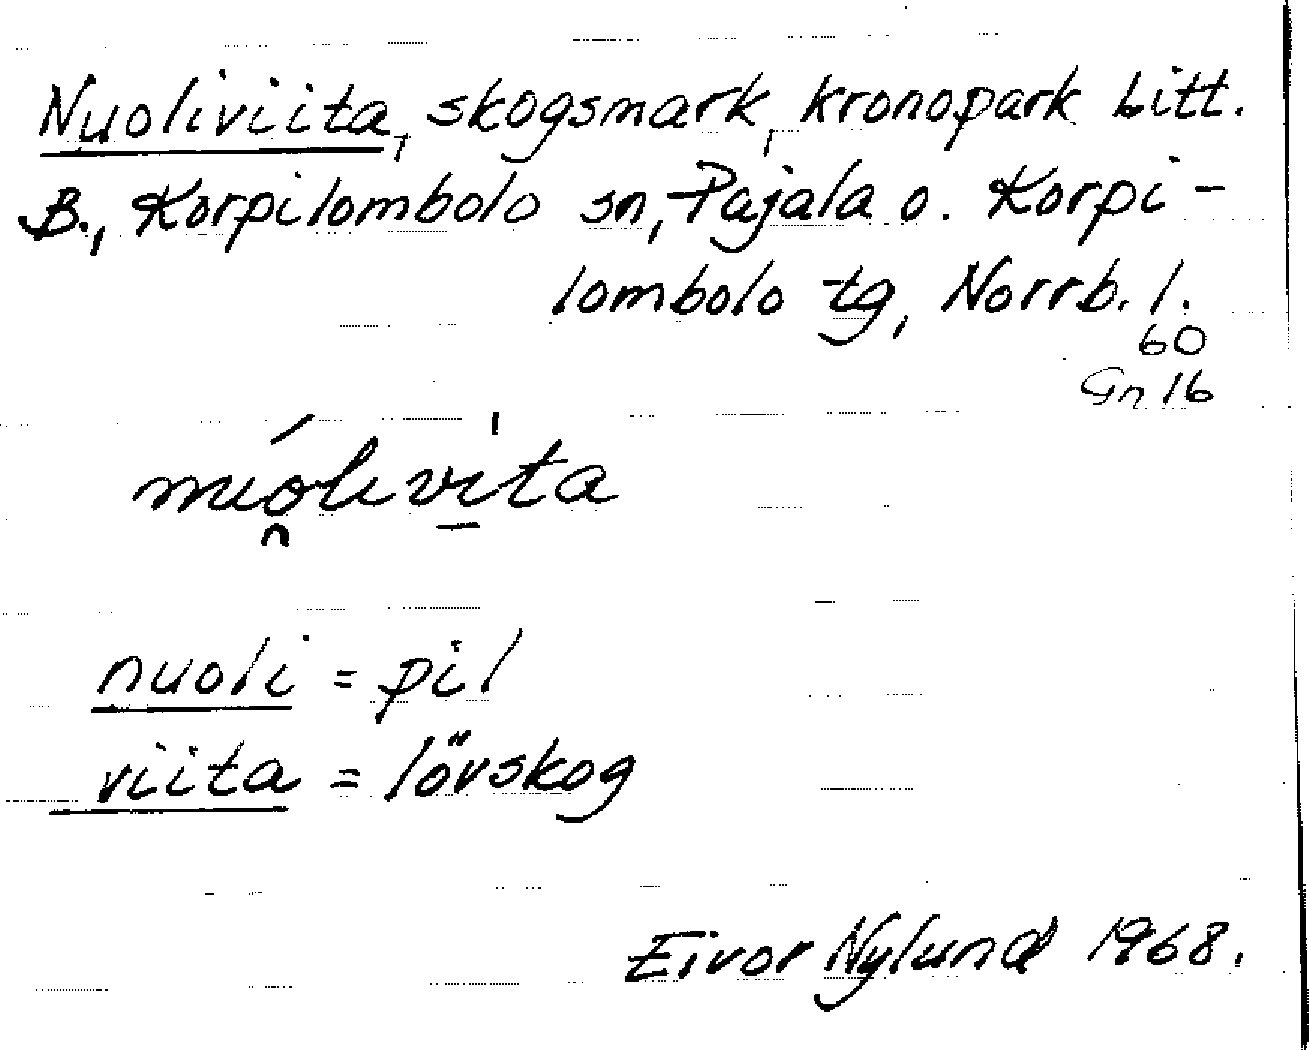 Nuoliviita, skogsmark, kronopark Litt.
B., Korpilombolo sn, Pajala o. Korpi-
lombolo tg, Norrb. l.
60
Gn 16
nuoli = pil
viita = lövskog
Eivor Nylund 1968.